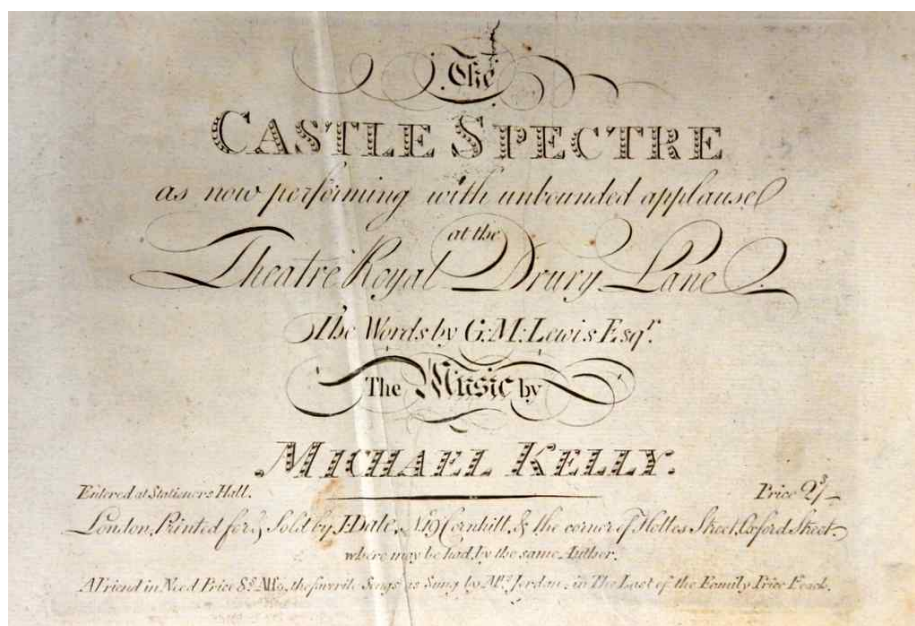 The
CASTLE SPECTRE
as now performing with unbounded applause
at the
Theatre Royal Drury Lane
The Words by G.M: Lewis Esqr.
The Music by
MICHAEL KELLY.
Entered at Stationers Hall.
Price 2/-
London, Printed for, & Sold by J. Dale, No. 19 Cornhill, & the corner of Holles Street, Oxford Street.
where may be had, by the same Author.
A Friend in Need Price 8s. Also, the favorite Songs as Sung by Mrs. Jordan, in The Last of the Family Price Each.